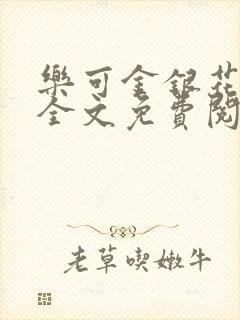 樂可金銀花
全文免費閱
老草喫嫩牛